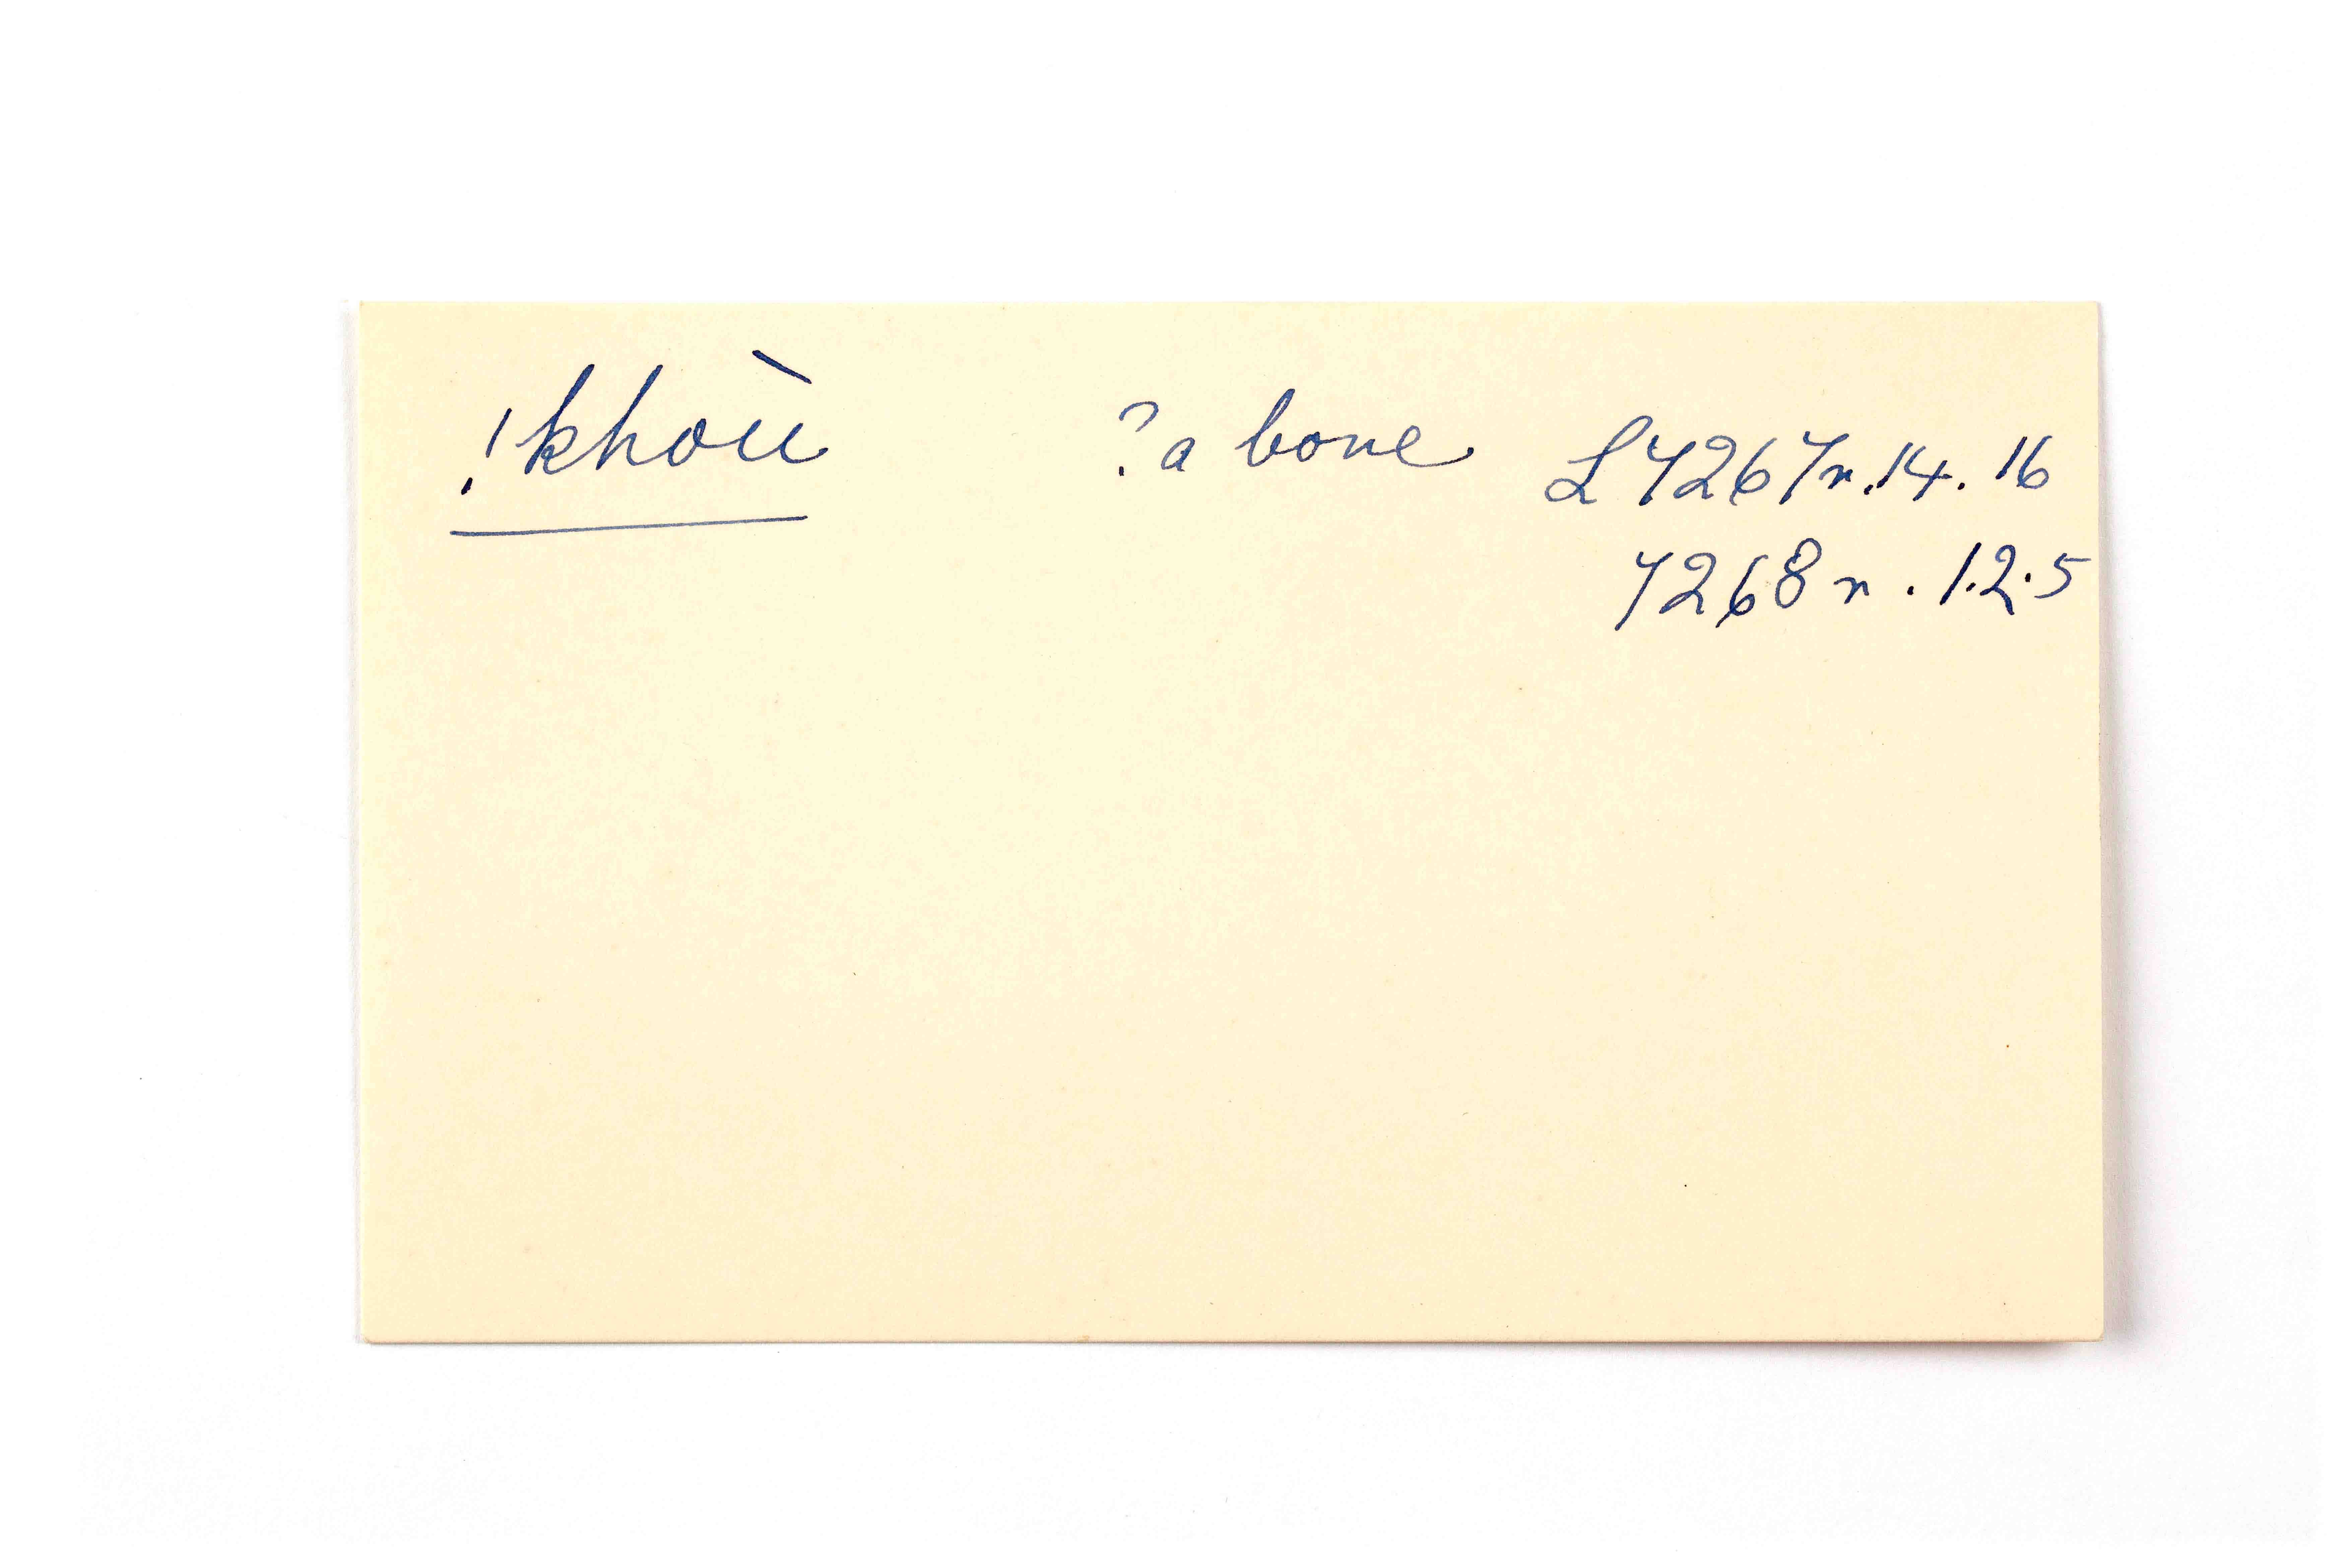 !khoù ?a bone L 7267r.14.16
7268r.1.2.5